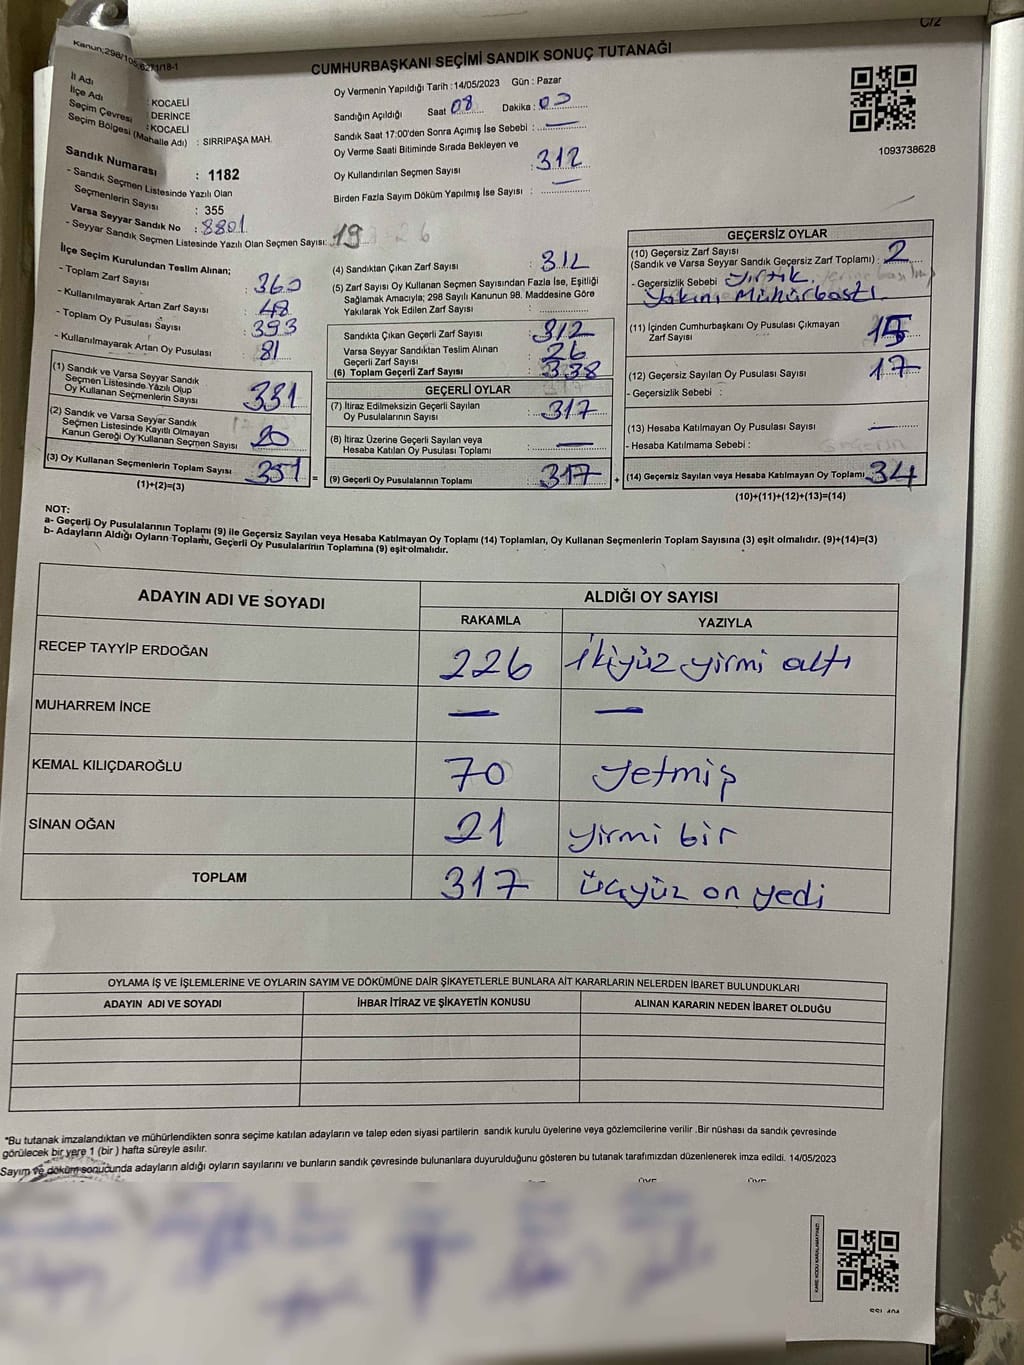 C/2
Kanun;298/105,6271/18-1
CUMHURBAŞKANI SEÇİMİ SANDIK SONUÇ TUTANAĞI
İl Adı : KOCAELİ
İlçe Adı : DERİNCE
Seçim Çevresi : KOCAELİ
Seçim Bölgesi (Mahalle Adı) : SIRRIPAŞA MAH.
Sandık Numarası : 1182
- Sandık Seçmen Listesinde Yazılı Olan
Seçmenlerin Sayısı : 355
Varsa Seyyar Sandık No : 8801
- Seyyar Sandık Seçmen Listesinde Yazılı Olan Seçmen Sayısı: 19
Oy Vermenin Yapıldığı Tarih : 14/05/2023 Gün : Pazar
Sandığın Açıldığı Saat 08 Dakika : 00
Sandık Saat 17:00'den Sonra Açımış İse Sebebi : —
Oy Verme Saati Bitiminde Sırada Bekleyen ve
Oy Kullandırılan Seçmen Sayısı : 312
Birden Fazla Sayım Döküm Yapılmış İse Sayısı : —
1093738628
İlçe Seçim Kurulundan Teslim Alınan;
- Toplam Zarf Sayısı : 360
- Kullanılmayarak Artan Zarf Sayısı : 48
- Toplam Oy Pusulası Sayısı : 393
- Kullanılmayarak Artan Oy Pusulası : 81
(1) Sandık ve Varsa Seyyar Sandık
Seçmen Listesinde Yazılı Olup
Oy Kullanan Seçmenlerin Sayısı 331
(2) Sandık ve Varsa Seyyar Sandık
Seçmen Listesinde Kayıtlı Olmayan
Kanun Gereği Oy Kullanan Seçmen Sayısı 20
(3) Oy Kullanan Seçmenlerin Toplam Sayısı 351
(1)+(2)=(3)
(4) Sandıktan Çıkan Zarf Sayısı : 312
(5) Zarf Sayısı Oy Kullanan Seçmen Sayısından Fazla İse, Eşitliği
Sağlamak Amacıyla; 298 Sayılı Kanunun 98. Maddesine Göre
Yakılarak Yok Edilen Zarf Sayısı :
Sandıkta Çıkan Geçerli Zarf Sayısı : 312
Varsa Seyyar Sandıktan Teslim Alınan
Geçerli Zarf Sayısı : 26
(6) Toplam Geçerli Zarf Sayısı : 338
GEÇERLİ OYLAR
(7) İtiraz Edilmeksizin Geçerli Sayılan
Oy Pusulalarının Sayısı : 317
(8) İtiraz Üzerine Geçerli Sayılan veya
Hesaba Katılan Oy Pusulası Toplamı : —
= (9) Geçerli Oy Pusulalarının Toplamı : 317
GEÇERSİZ OYLAR
(10) Geçersiz Zarf Sayısı
(Sandık ve Varsa Seyyar Sandık Geçersiz Zarf Toplamı) : 2
- Geçersizlik Sebebi : Yırtık,
Yakını Mühürbastı.
(11) İçinden Cumhurbaşkanı Oy Pusulası Çıkmayan
Zarf Sayısı : 15
(12) Geçersiz Sayılan Oy Pusulası Sayısı : 17
- Geçersizlik Sebebi :
(13) Hesaba Katılmayan Oy Pusulası Sayısı : —
- Hesaba Katılmama Sebebi :
+ (14) Geçersiz Sayılan veya Hesaba Katılmayan Oy Toplamı 34
(10)+(11)+(12)+(13)=(14)
NOT:
a- Geçerli Oy Pusulalarının Toplamı (9) ile Geçersiz Sayılan veya Hesaba Katılmayan Oy Toplamı (14) Toplamları, Oy Kullanan Seçmenlerin Toplam Sayısına (3) eşit olmalıdır. (9)+(14)=(3)
b- Adayların Aldığı Oyların Toplamı, Geçerli Oy Pusulalarının Toplamına (9) eşit olmalıdır.
ADAYIN ADI VE SOYADI ALDIĞI OY SAYISI
RAKAMLA YAZIYLA
RECEP TAYYİP ERDOĞAN 226 ikiyüz yirmi altı
MUHARREM İNCE — —
KEMAL KILIÇDAROĞLU 70 yetmiş
SİNAN OĞAN 21 yirmi bir
TOPLAM 317 üçyüz on yedi
OYLAMA İŞ VE İŞLEMLERİNE VE OYLARIN SAYIM VE DÖKÜMÜNE DAİR ŞİKAYETLERLE BUNLARA AİT KARARLARIN NELERDEN İBARET BULUNDUKLARI
ADAYIN ADI VE SOYADI İHBAR İTİRAZ VE ŞİKAYETİN KONUSU ALINAN KARARIN NEDEN İBARET OLDUĞU
*Bu tutanak imzalandıktan ve mühürlendikten sonra seçime katılan adayların ve talep eden siyasi partilerin sandık kurulu üyelerine veya gözlemcilerine verilir .Bir nüshası da sandık çevresinde
görülecek bir yere 1 (bir ) hafta süreyle asılır.
Sayım ve döküm sonucunda adayların aldığı oyların sayılarını ve bunların sandık çevresinde bulunanlara duyurulduğunu gösteren bu tutanak tarafımızdan düzenlenerek imza edildi. 14/05/2023